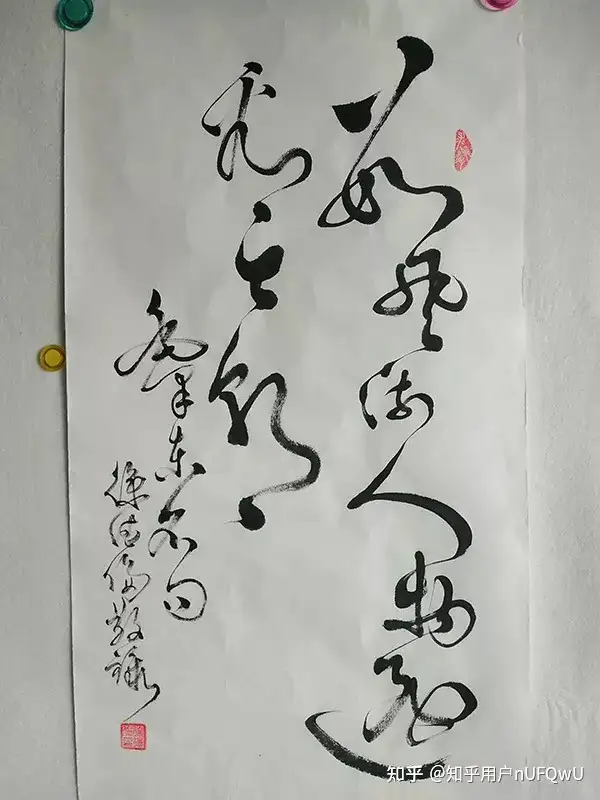 数风流人物还
看今朝
毛泽东名句
徐
知乎 @知乎用户nUFQwU